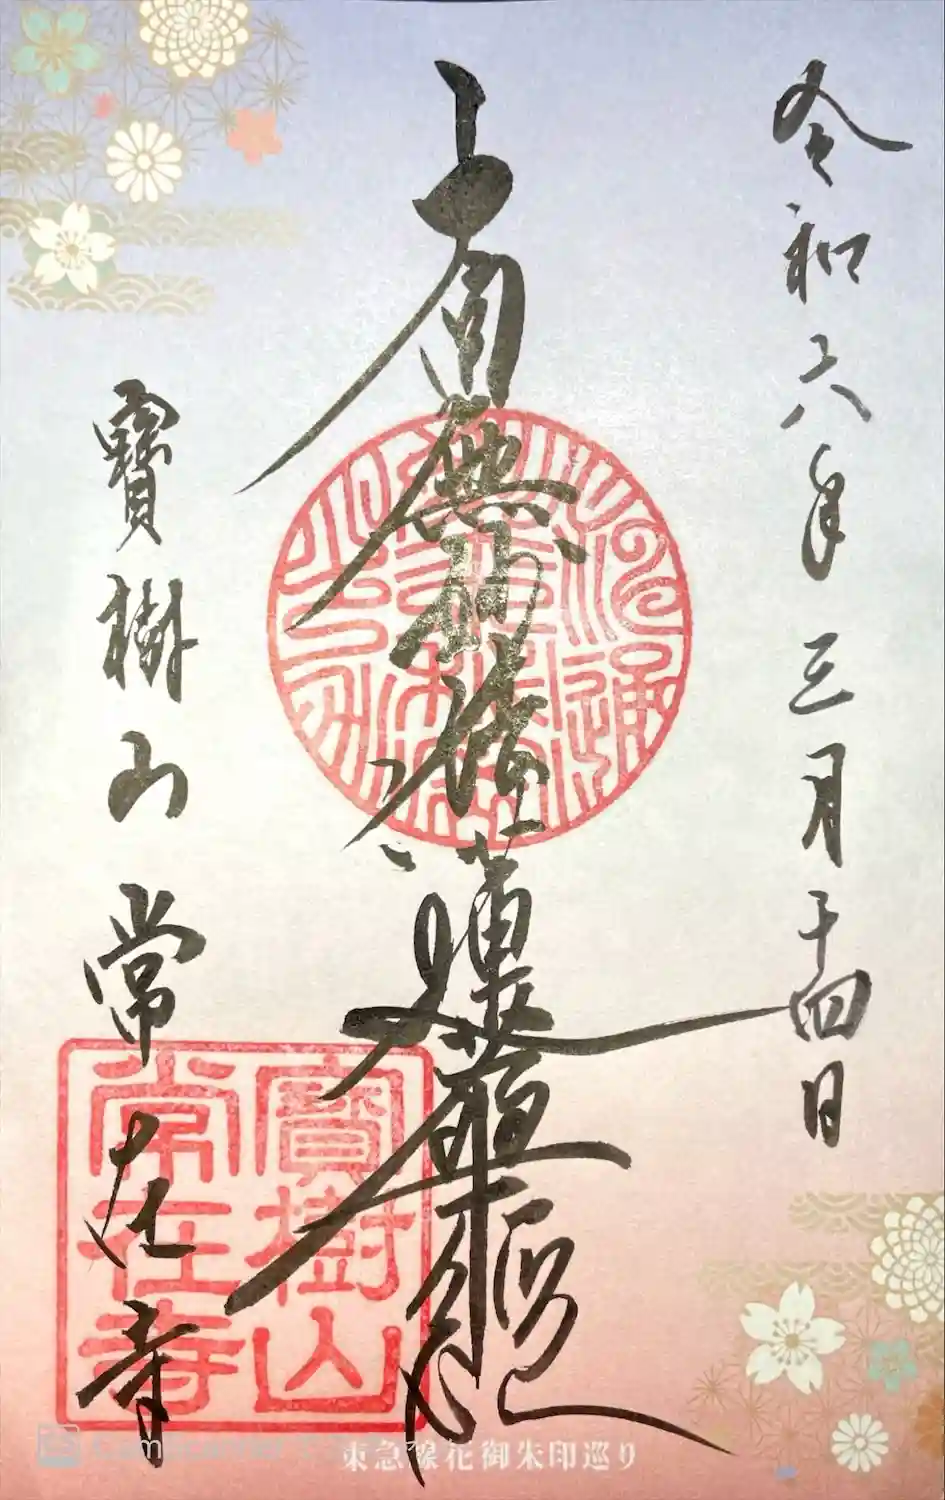 令和六年三月十四日
南無妙法蓮華經
寶樹山常在寺
寶樹山
常在寺
東急線花御朱印巡り